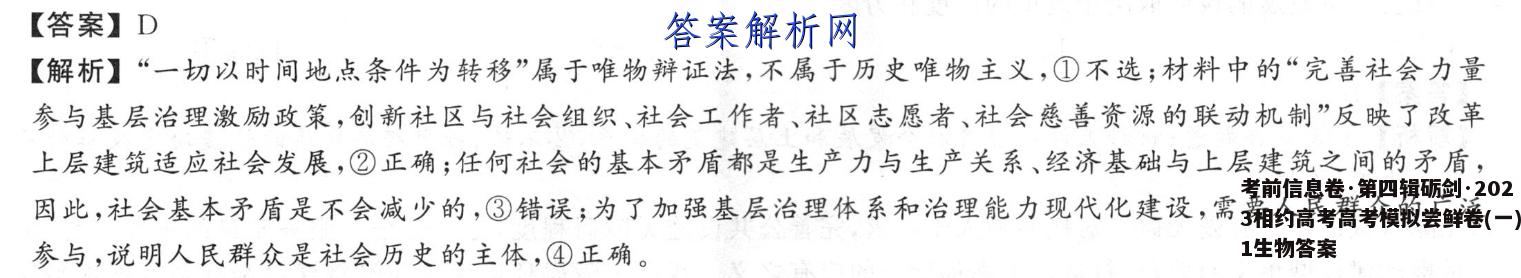 【答案】D
答案解析网
【解析】“一切以时间地点条件为转移”属于唯物辩证法，不属于历史唯物主义，①不选；材料中的“完善社会力量
参与基层治理激励政策，创新社区与社会组织、社会工作者、社区志愿者、社会慈善资源的联动机制”反映了改革
上层建筑适应社会发展，②正确；任何社会的基本矛盾都是生产力与生产关系、经济基础与上层建筑之间的矛盾，
因此，社会基本矛盾是不会减少的，③错误；为了加强基层治理体系和治理能力现代化建设，需要人民群众的广泛
参与，说明人民群众是社会历史的主体，④正确。
考前信息卷·第四辑砺剑·202
3相约高考高考模拟尝鲜卷(一)
1生物答案